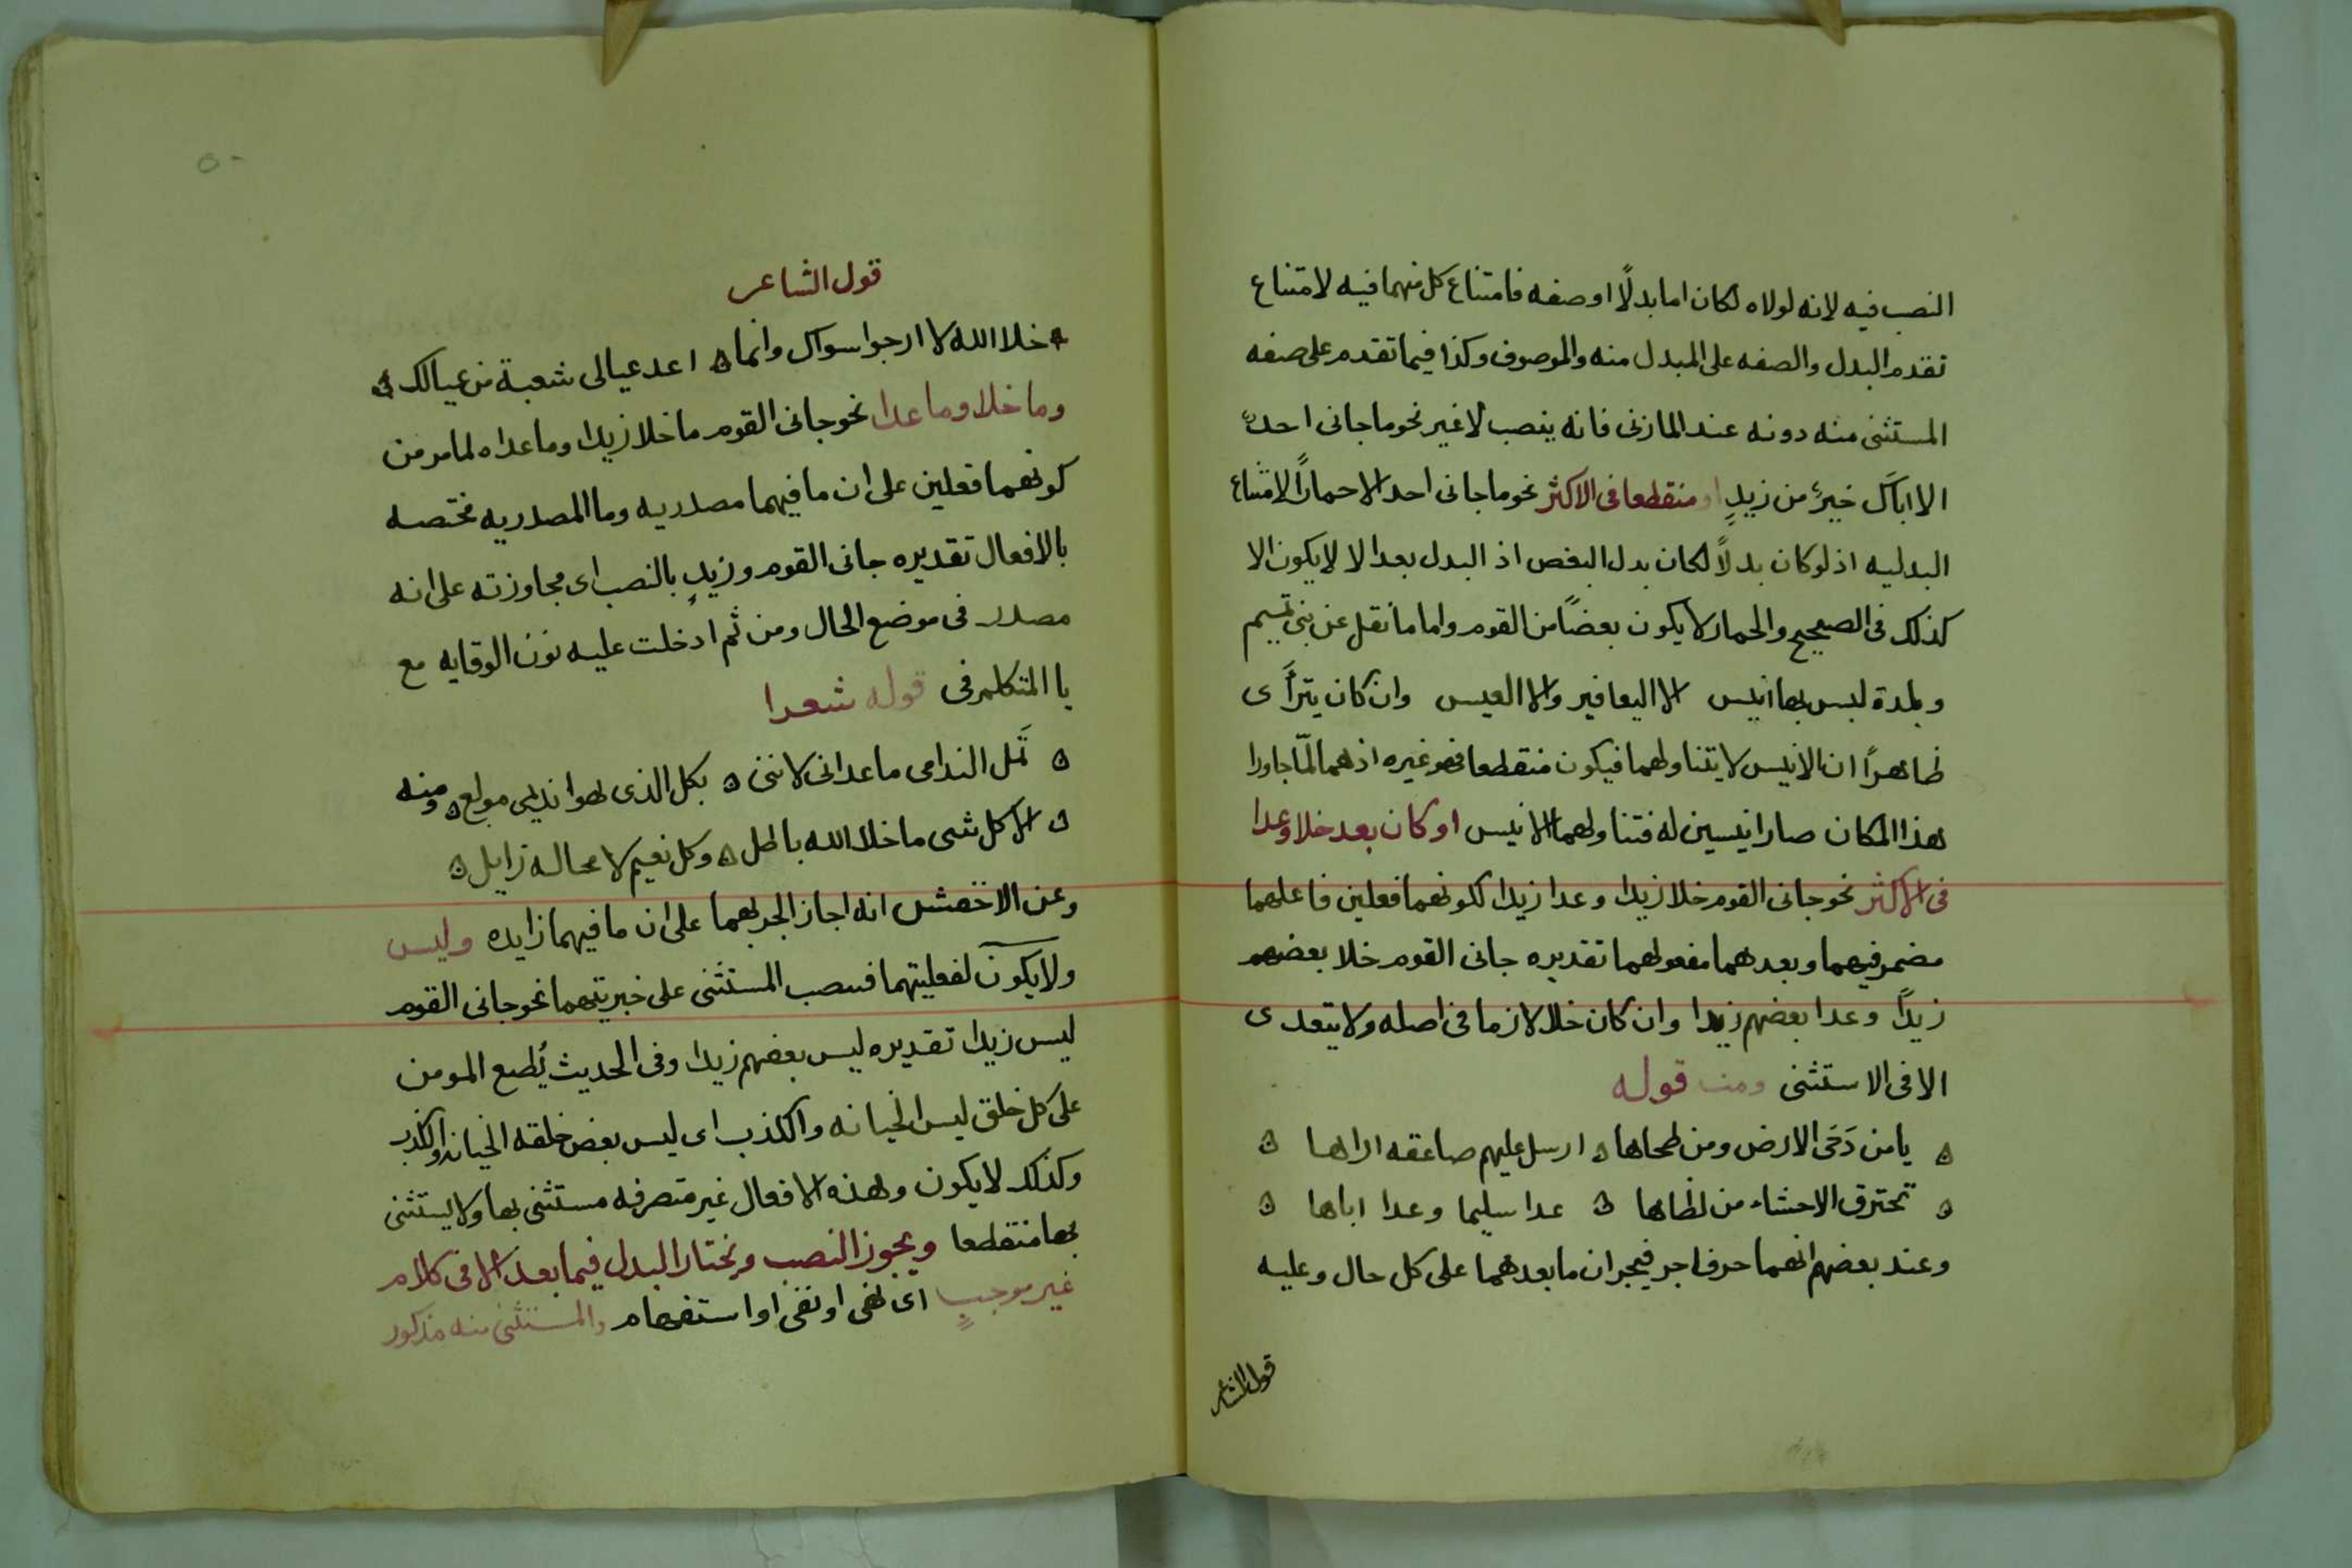 النصب فيه لانه لولاه لكان اما بدلًا او صفه فامتناع كل منهما فيه لامتناع
تقدم البدل والصفه على المبدل منه والموصوف وكذا فيما تقدم على صفه
المستثنى منه دونه عند المازنى فانه ينصب لا غير نحو ما جانى احدٌ
الا اباك خيرٌ من زيدٍ او منقطعا فى الاكثر نحو ما جانى احد الا حمارًا لامتناع
البدليه اذ لو كان بدلاً لكان بدل البعض اذ البدل بعد الا لا يكون الا
كذلك فى الصحيح والحمار لا يكون بعضًا من القوم واما ما نقل عن بنى تميم
وبلدة ليس بها انيس الا اليعافير والا العيس وان كان يترأى
ظاهرًا ان الانيس لا يتناولهما فيكون منقطعا فهو غيره اذ هما لمّا جاورا
هذا المكان صارا نيسين له فتناولهما الانيس او كان بعد خلا وعدا
فى الاكثر نحو جانى القوم خلا زيدا وعدا زيدا لكونهما فعلين فاعلهما
مضمر فيهما وبعدهما مفعولهما تقديره جانى القوم خلا بعضهم
زيدًا وعدا بعضهم زيدا وان كان خلا لازما فى اصله ولا يتعدى
الا فى الاستثنى ومنه قوله
يا من دَحَى الارض ومن طحاها ارسل عليهم صاعقه اراها
تحترق الاحشاء من لظاها عدا سليما وعدا اباها
وعند بعضهم انهما حرفا جر فيجران ما بعدهما على كل حال وعليه
قول الشاعر
قول الشاعر
خلا الله لا ارجوا سواك وانما اعد عيالى شعبة من عيالك
وما خلا وما عدا نحو جانى القوم ما خلا زيدا وما عداه لما مر من
كونهما فعلين على ان ما فيهما مصدريه وما المصدريه مختصه
بالافعال تقديره جانى القوم وزيدٍ بالنصب اى مجاوزته على انه
مصدر فى موضع الحال ومن ثم ادخلت عليه نون الوقايه مع
يا المتكلم فى قوله شعرا
تَمل الندامى ما عدانى لاننى بكل الذى يهوا نديمى مولع ومنه
الا كل شى ما خلا الله باطل وكل نعيم لا محالة زايل
وعن الاخفش انه اجاز الجر بهما على ان ما فيهما زايده وليس
ولا يكون لفعليتهما فينصب المستثنى على خبريتهما نحو جانى القوم
ليس زيدا تقديره ليس بعضهم زيدا وفى الحديث يُطبع المومن
على كل خلق ليس الخيانه والكذب اى ليس بعض خلقه الخيانه والكذب
وكذلك لا يكون وهذه الافعال غير متصرفه مستثنى بها ولا يستثنى
بها منقطعا ويجوز النصب ويختار البدل فيما بعد الا فى كلام
غير موجبٍ اى نهى او نفى او استفهام والمستثنى منه مذكور